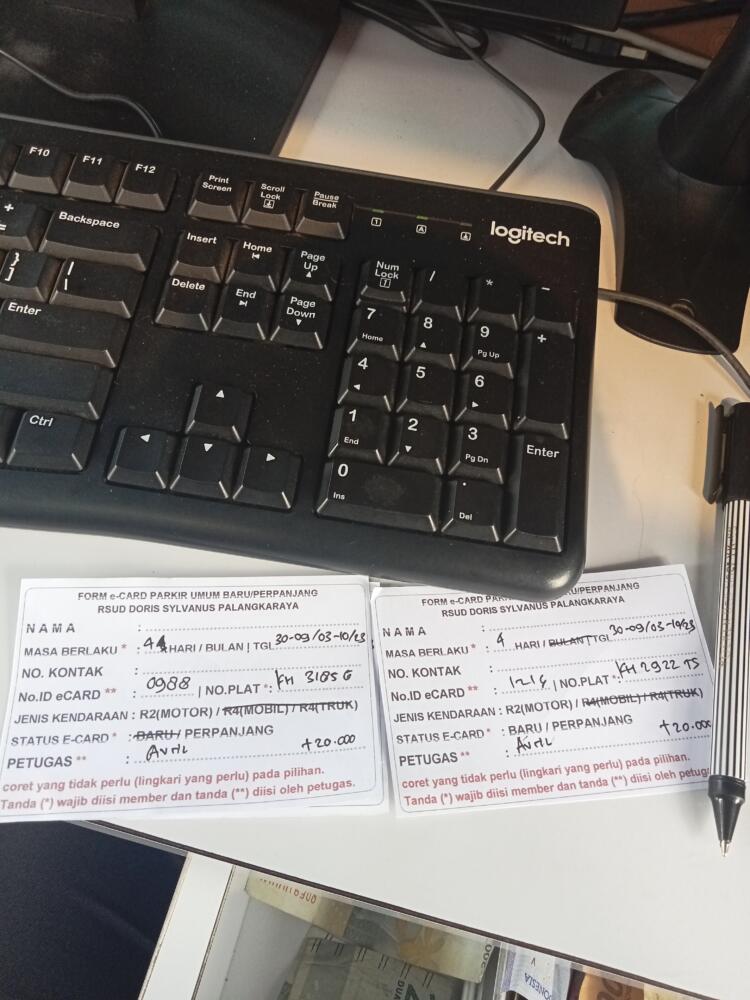 F10 F11 F12 Print Screen Scroll Lock Pause Break
logitech
+ = Backspace Insert Home Page Up Num Lock / * -
} ] | \ Delete End Page Down 7 Home 8 9 Pg Up +
Enter 4 5 6
Ctrl 1 End 2 3 Pg Dn Enter
0 Ins . Del
FORM e-CARD PARKIR UMUM BARU/PERPANJANG
RSUD DORIS SYLVANUS PALANGKARAYA
NAMA :
MASA BERLAKU * : 4 HARI / BULAN | TGL 30-09/03-10/23
NO. KONTAK :
No.ID eCARD ** : 0988 | NO.PLAT *: KH 3185 G
JENIS KENDARAAN : R2(MOTOR) / R4(MOBIL) / R4(TRUK)
STATUS E-CARD * : BARU / PERPANJANG
PETUGAS ** : Avril +20.000
coret yang tidak perlu (lingkari yang perlu) pada pilihan.
Tanda (*) wajib diisi member dan tanda (**) diisi oleh petugas.
FORM e-CARD BARU/PERPANJANG
RSUD DORIS SYLVANUS PALANGKARAYA
NAMA :
MASA BERLAKU * : 4 HARI / BULAN | TGL 30-09/03-10/23
NO. KONTAK :
No.ID eCARD ** : | NO.PLAT *: KH 2922 TS
JENIS KENDARAAN : R2(MOTOR) / R4(MOBIL) / R4(TRUK)
STATUS E-CARD * : BARU / PERPANJANG
PETUGAS ** : Avril +20.000
coret yang tidak perlu (lingkari yang perlu) pada pilihan.
Tanda (*) wajib diisi member dan tanda (**) diisi oleh petug